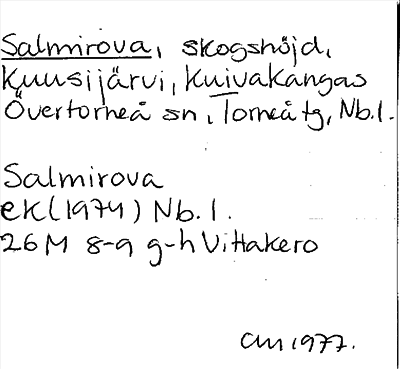 Salmirova, skogshöjd,
Kuusijärvi, Kuivakangas
Övertorneå sn, Torneå tg, Nb.l.
Salmirova
ek (1974) Nb.l.
26M 8-9 g-h Vittakero
am 1977.